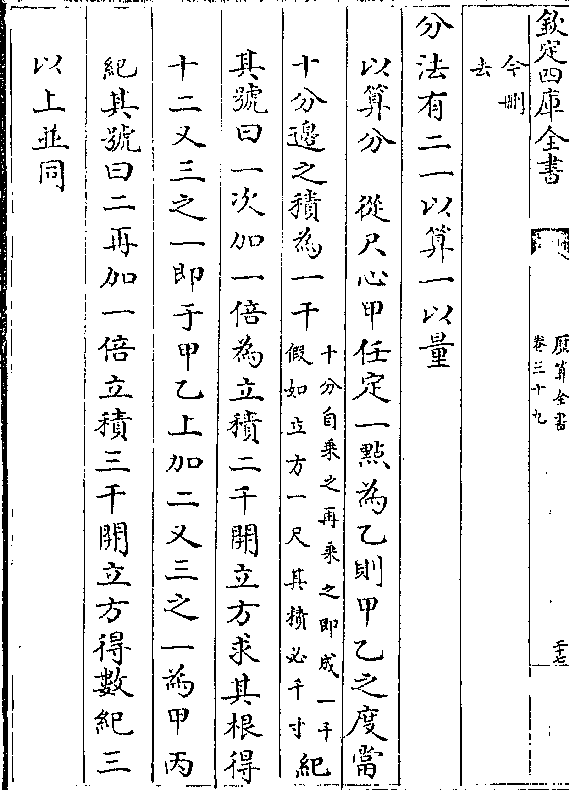 欽定四庫全書
歷算全書
卷三十九
二十七
今刪
去
分法有二一以算一以量
以算分　從尺心甲任定一點為乙則甲乙之度當
十分邊之積為一千
十分自乘之再乘之即成一千
假如立方一尺其積必千寸
紀
其號曰一次加一倍為立積二千開立方求其根得
十二又三之一即于甲乙上加二又三之一為甲丙
紀其號曰二再加一倍立積三千開立方得數紀三
以上並同